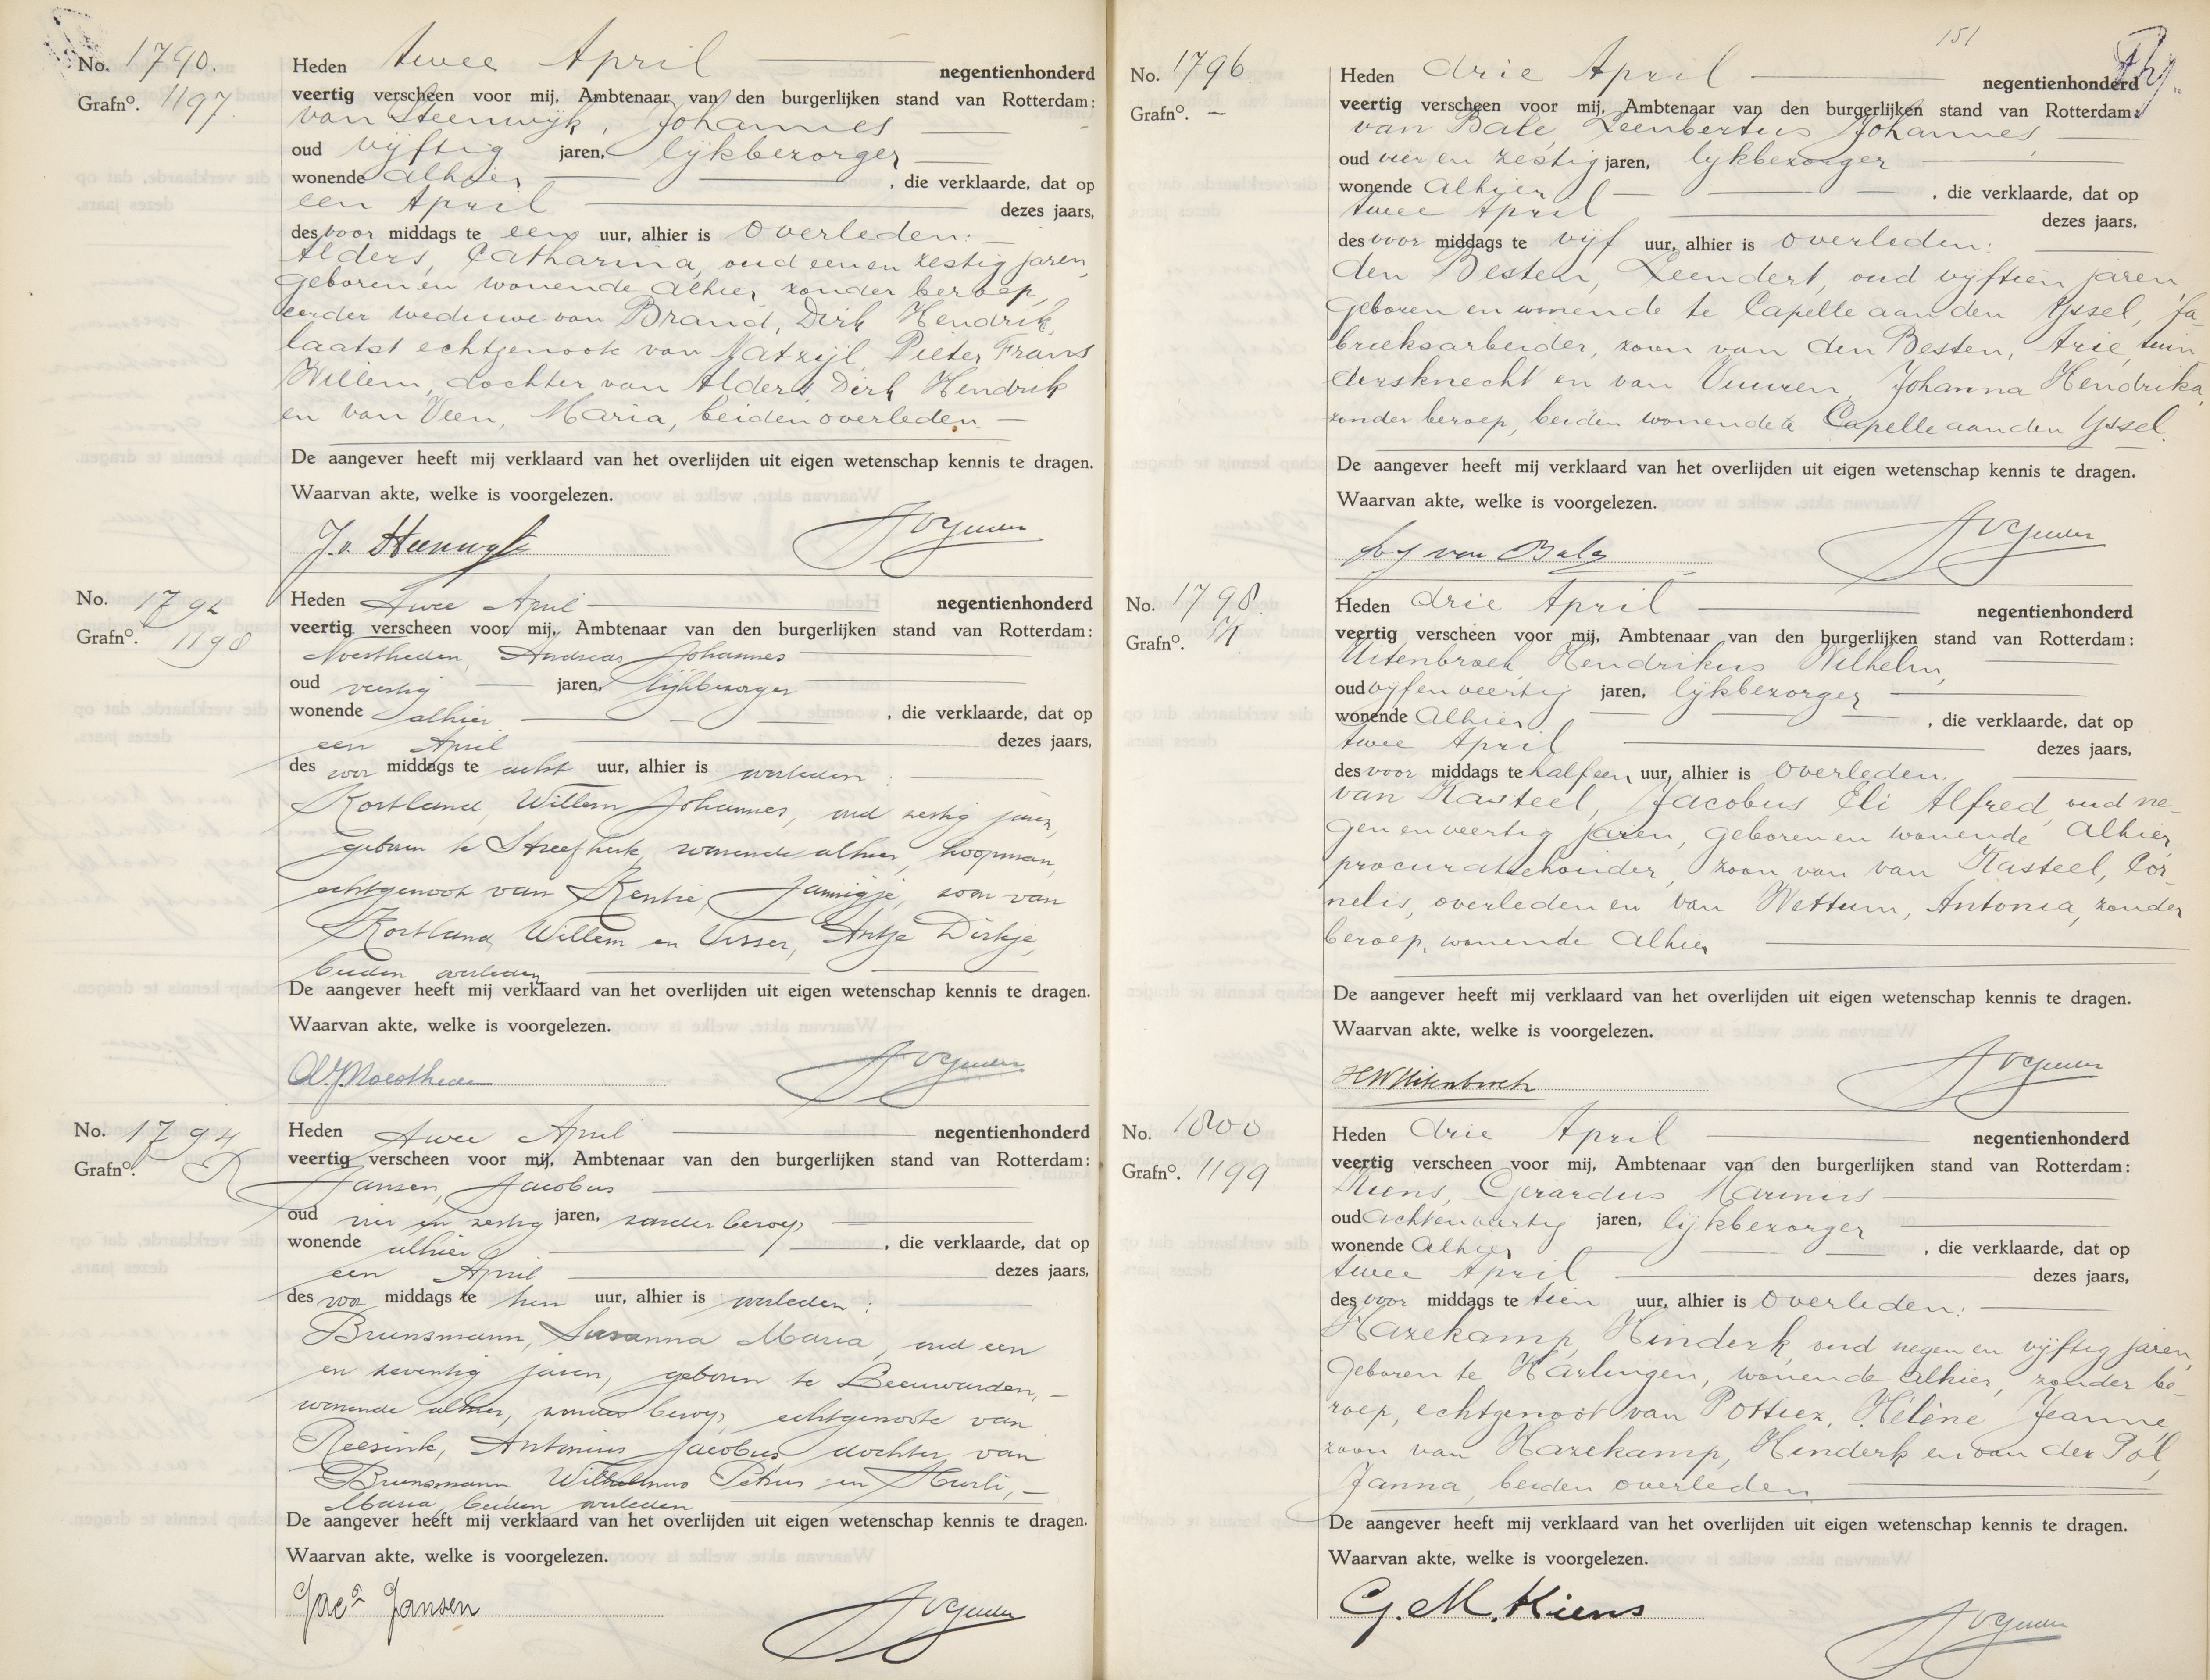 No. 1790.
Grafno. 1197.
Heden twee April negentienhonderd
veertig verscheen voor mij, Ambtenaar van den burgerlijken stand van Rotterdam:
van Steenwijk, Johannes
oud vijftig jaren, lijkbezorger
wonende alhier, die verklaarde, dat op
een April dezes jaars,
des voor middags te een uur, alhier is overleden:
Alders, Catharina, oud een en zestig jaren,
geboren en wonende alhier, zonder beroep,
eerder weduwe van Brand, Dirk Hendrik,
laatst echtgenoote van Natzijl, Pieter Frans
Willem, dochter van Alders Dirk Hendrik
en van Veen, Maria, beiden overleden.
De aangever heeft mij verklaard van het overlijden uit eigen wetenschap kennis te dragen.
Waarvan akte, welke is voorgelezen.
J. v. Steenwyk
No. 1792
Grafno. 1198
Heden twee April negentienhonderd
veertig verscheen voor mij, Ambtenaar van den burgerlijken stand van Rotterdam:
Noestheden, Andreas Johannes
oud veertig jaren, lijkbezorger
wonende alhier, die verklaarde, dat op
een April dezes jaars,
des voor middags te acht uur, alhier is overleden:
Kortland, Willem Johannes, oud zestig jaren,
geboren te Streefkerk, wonende alhier, koopman,
echtgenoot van Kentie, Jannigje, zoon van
Kortland, Willem en Visser, Antje Dirkje,
beiden overleden
De aangever heeft mij verklaard van het overlijden uit eigen wetenschap kennis te dragen.
Waarvan akte, welke is voorgelezen.
A.J. Noestheden
No. 1794
Grafno.
Heden twee April negentienhonderd
veertig verscheen voor mij, Ambtenaar van den burgerlijken stand van Rotterdam:
Jansen, Jacobus
oud vier en zestig jaren, zonder beroep
wonende alhier, die verklaarde, dat op
een April dezes jaars,
des voor middags te tien uur, alhier is overleden:
Brunsmann, Susanna Maria, oud een
en zeventig jaren, geboren te Leeuwarden,
wonende alhier, zonder beroep, echtgenoote van
Reesink, Antonius Jacobus, dochter van
Brunsmann Wilhelmus Petrus en
Maria, beiden overleden
De aangever heeft mij verklaard van het overlijden uit eigen wetenschap kennis te dragen.
Waarvan akte, welke is voorgelezen.
Jacs Jansen
151
No. 1796
Grafno. —
Heden drie April negentienhonderd
veertig verscheen voor mij, Ambtenaar van den burgerlijken stand van Rotterdam:
van Bale, Leenbertus Johannes
oud vier en zestig jaren, lijkbezorger
wonende alhier, die verklaarde, dat op
twee April dezes jaars,
des voor middags te vijf uur, alhier is overleden:
den Besten, Leendert, oud vijftien jaren,
geboren en wonende te Capelle aan den Yssel, fa-
brieksarbeider, zoon van den Besten, Arie, tuin-
dersknecht en van Vuuren, Johanna Hendrika,
zonder beroep, beiden wonende te Capelle aan den Yssel.
De aangever heeft mij verklaard van het overlijden uit eigen wetenschap kennis te dragen.
Waarvan akte, welke is voorgelezen.
van Bale
No. 1798.
Grafno.
Heden drie April negentienhonderd
veertig verscheen voor mij, Ambtenaar van den burgerlijken stand van Rotterdam:
Uitenbroek Hendrikus Wilhelm,
oud vijf en veertig jaren, lijkbezorger
wonende alhier, die verklaarde, dat op
twee April dezes jaars,
des voor middags te half een uur, alhier is overleden:
van Kasteel, Jacobus Eli Alfred, oud ne-
gen en veertig jaren, geboren en wonende alhier,
procuratiehouder, zoon van van Kasteel, Cor-
nelis, overleden en van Wettum, Antonia, zonder
beroep, wonende alhier
De aangever heeft mij verklaard van het overlijden uit eigen wetenschap kennis te dragen.
Waarvan akte, welke is voorgelezen.
HW Uitenbroek
No. 1800
Grafno. 1199
Heden drie April negentienhonderd
veertig verscheen voor mij, Ambtenaar van den burgerlijken stand van Rotterdam:
Kiens, Gerardus Marinus
oud achtenveertig jaren, lijkbezorger
wonende alhier, die verklaarde, dat op
twee April dezes jaars,
des voor middags te tien uur, alhier is overleden:
Hazekamp, Hinderk, oud negen en vijftig jaren,
geboren te Harlingen, wonende alhier, zonder be-
roep, echtgenoot van Pottiez, Hélène Jeanne,
zoon van Hazekamp, Hinderk en van der Pol,
Janna, beiden overleden
De aangever heeft mij verklaard van het overlijden uit eigen wetenschap kennis te dragen.
Waarvan akte, welke is voorgelezen.
G. M. Kiens